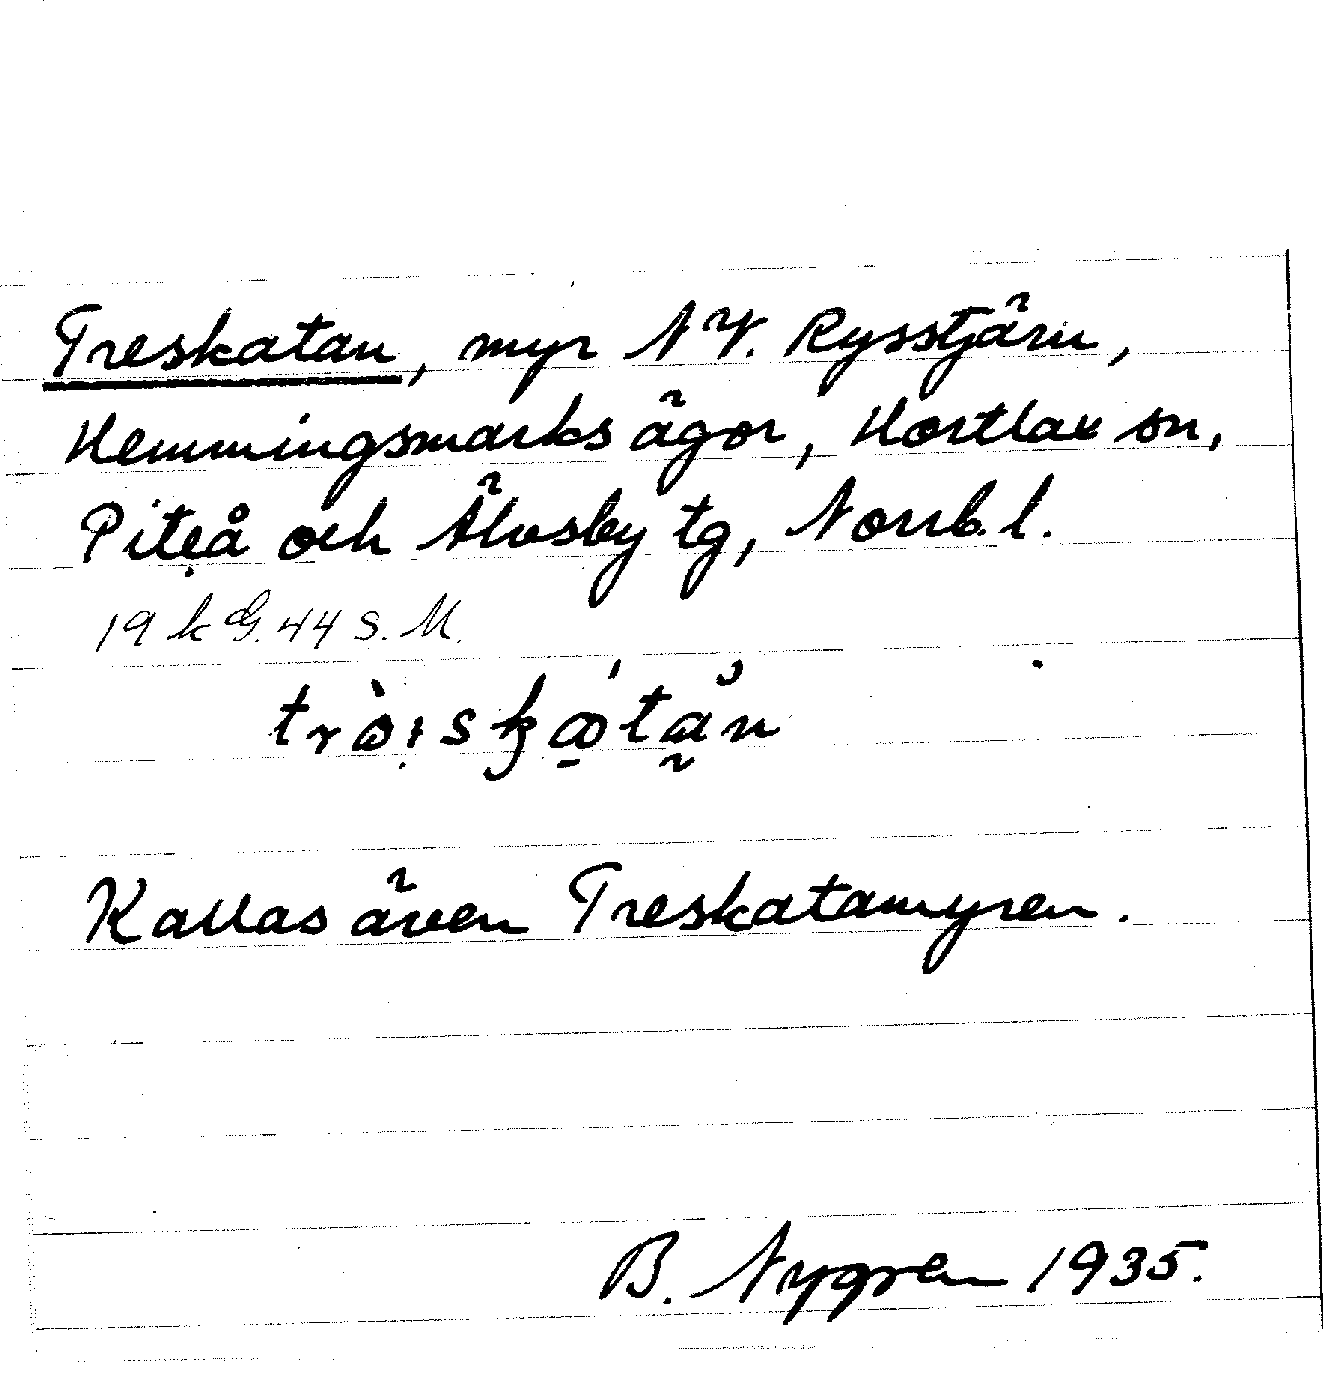 Treskatan, myr NV. Rysstjärn,
Hemmingsmarks ägor, Hortlax sn,
Piteå och Älvsby tg, Norrb. l.
19 k G. 44 S. M.
Kallas även Treskatamyren.
B. Nygren 1935.